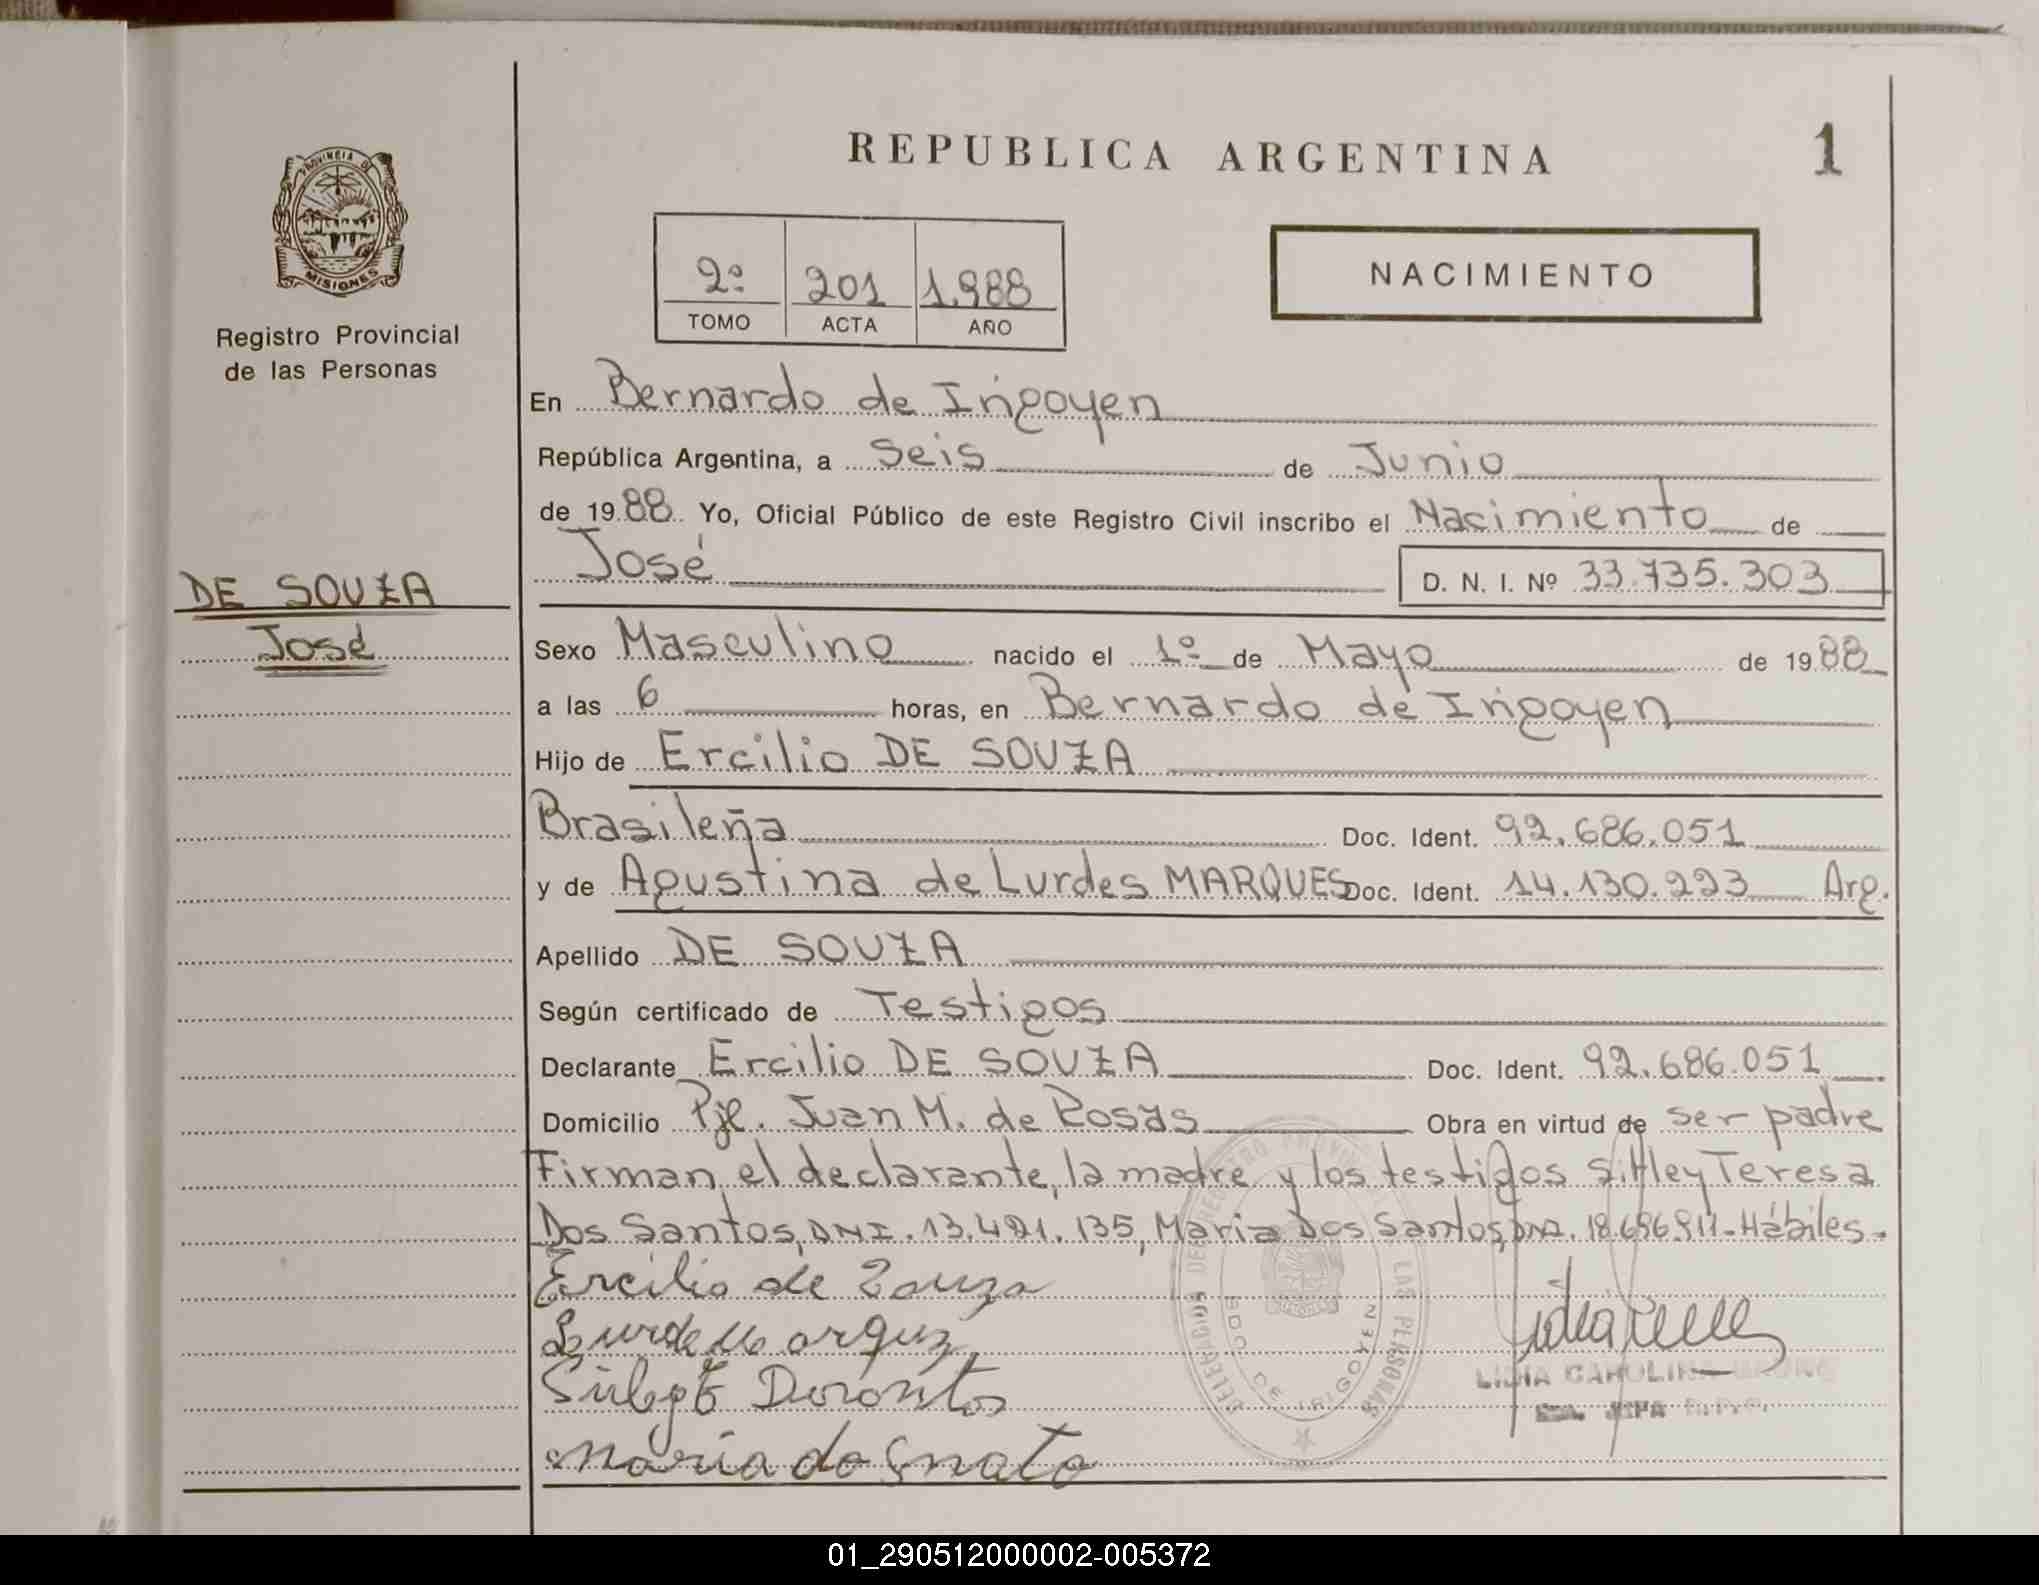 REPUBLICA ARGENTINA
1
PROVINCIA DE
MISIONES
Registro Provincial
de las Personas
2º 201 1.988
TOMO ACTA AÑO
NACIMIENTO
En Bernardo de Irigoyen
República Argentina, a Seis de Junio
de 1988 Yo, Oficial Público de este Registro Civil inscribo el Nacimiento de
José D. N. I. Nº 33.735.303
DE SOUZA
José
Sexo Masculino nacido el 1º de Mayo de 1988
a las 6 horas, en Bernardo de Irigoyen
Hijo de Ercilio DE SOUZA
Brasileña Doc. Ident. 92.686.051
y de Agustina de Lurdes MARQUES Doc. Ident. 14.130.223 Arg.
Apellido DE SOUZA
Según certificado de Testigos
Declarante Ercilio DE SOUZA Doc. Ident. 92.686.051
Domicilio Pje. Juan M. de Rosas Obra en virtud de ser padre
Firman el declarante, la madre y los testigos Teresa
Dos Santos, DNI. 13.421.135, Maria Dos Santos, DNI. 18.696.911-Hábiles.
Ercilio de Souza
DELEGACION DE REGISTRO PROVINCIAL LAS PERSONAS
BDO DE IRIGOYEN
LIDIA CAROLINA
JEFA
01_290512000002-005372